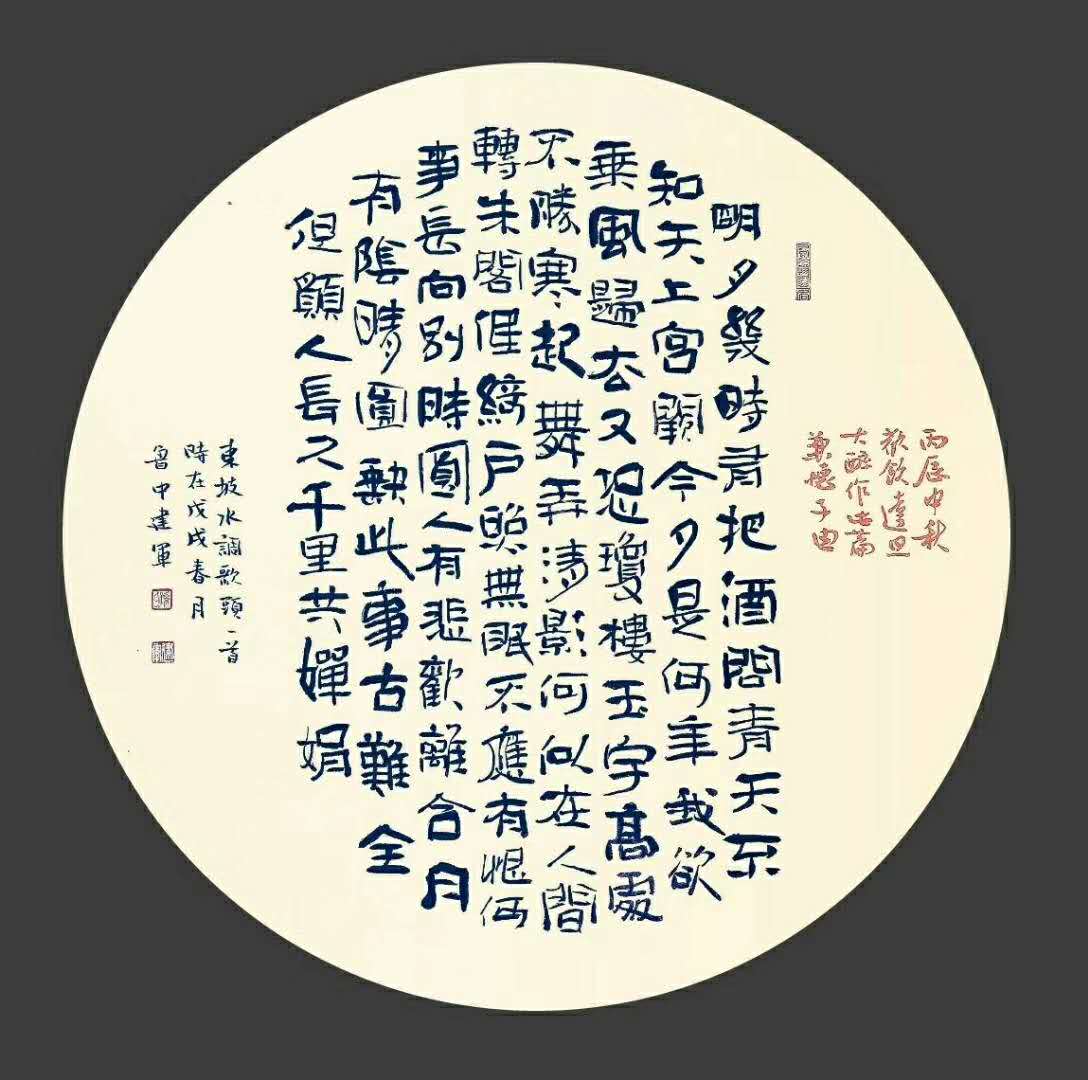 丙辰中秋
歡飲達旦
大醉作此篇
兼懷子由
明月幾時有把酒問青天不
知天上宮闕今夕是何年我欲
乘風歸去又恐瓊樓玉宇高處
不勝寒起舞弄清影何似在人間
轉朱閣低綺戶照無眠不應有恨何
事長向別時圓人有悲歡離合月
有陰晴圓缺此事古難全
但願人長久千里共嬋娟
東坡水調歌頭一首
時在戊戌春月
魯中建軍